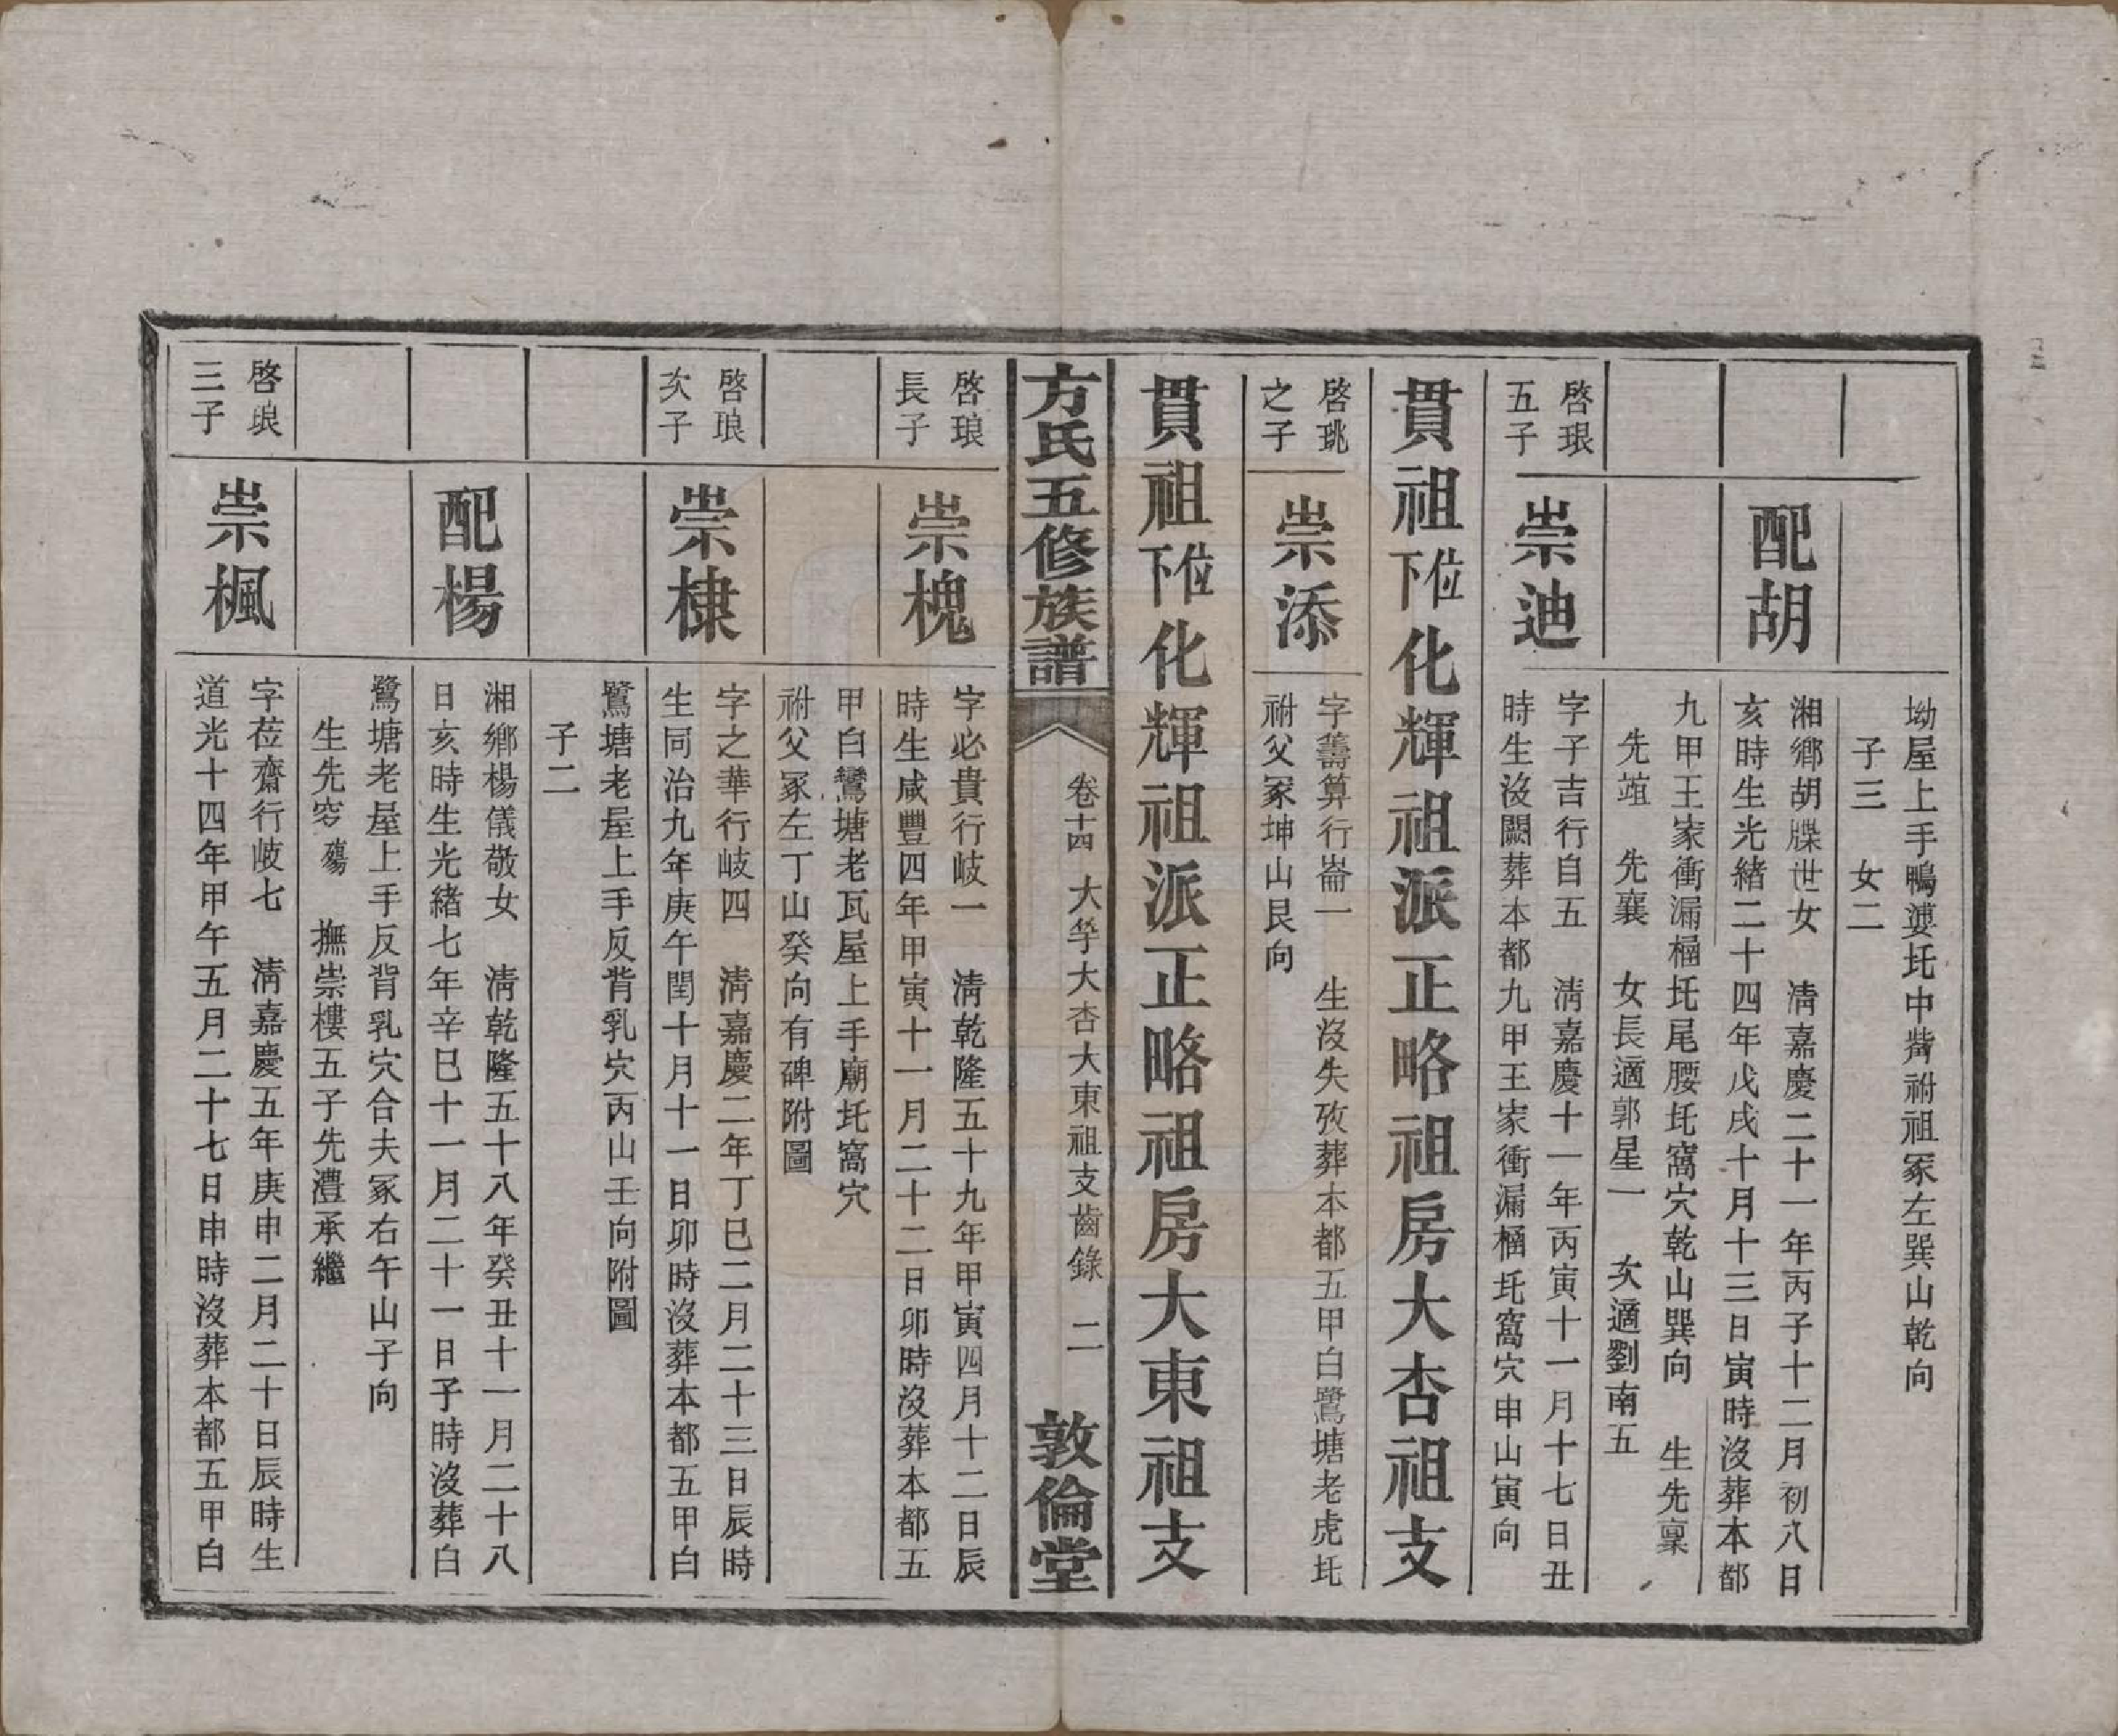 坳屋上手鴨婆圫中觜祔祖冢左巽山乾向
子三　女二
配胡
湘鄉胡牒世女　清嘉慶二十一年丙子十二月初八日
亥時生光緒二十四年戊戌十月十三日寅時沒葬本都
九甲王家衝漏樋圫尾腰圫窩穴乾山巽向　生先稟
先竩　先襄　女長適郭星一　次適劉南五
啓珢
五子
崇迪
字子吉行自五　清嘉慶十一年丙寅十一月十七日丑
時生沒闕葬本都九甲王家衝漏樋圫窩穴申山寅向
貫祖位下化輝祖派正略祖房大杏祖支
啓珧
之子
崇添
字籌算行崙一　生沒失攷葬本都五甲白鷺塘老虎圫
祔父冢坤山艮向
貫祖位下化輝祖派正略祖房大東祖支
方氏五修族譜　卷十四　大孚大杏大東祖支齒錄　二　敦倫堂
啓琅
長子
崇槐
字必貴行岐一　清乾隆五十九年甲寅四月十二日辰
時生咸豐四年甲寅十一月二十二日卯時沒葬本都五
甲白鷺塘老瓦屋上手廟圫窩穴
祔父冢左丁山癸向有碑附圖
啓琅
次子
崇棣
字之華行岐四　清嘉慶二年丁巳二月二十三日辰時
生同治九年庚午閏十月十一日卯時沒葬本都五甲白
鷺塘老屋上手反背乳穴丙山壬向附圖
子二
配楊
湘鄉楊儀敬女　清乾隆五十八年癸丑十一月二十八
日亥時生光緒七年辛巳十一月二十一日子時沒葬白
鷺塘老屋上手反背乳穴合夫冢右午山子向
生先穸殤　撫崇樓五子先澧承繼
啓琅
三子
崇楓
字莅齋行岐七　清嘉慶五年庚申二月二十日辰時生
道光十四年甲午五月二十七日申時沒葬本都五甲白